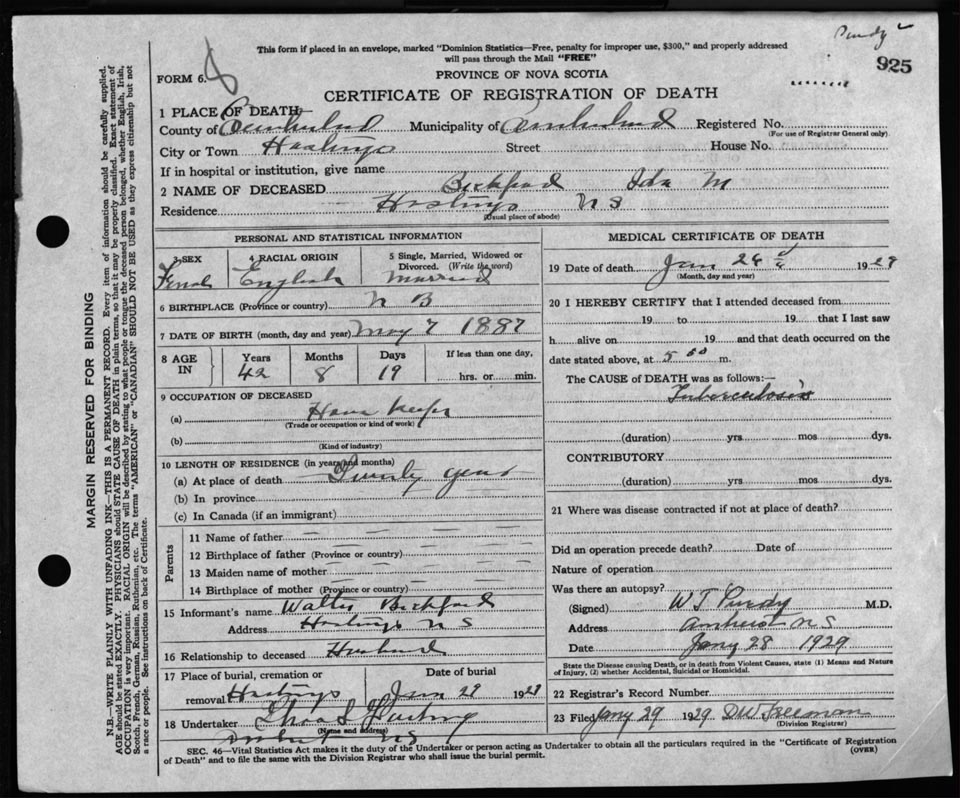 Purdy
925
This form if placed in an envelope, marked "Dominion Statistics—Free, penalty for improper use, $300," and properly addressed
will pass through the Mail "FREE"
FORM 6.
PROVINCE OF NOVA SCOTIA
CERTIFICATE OF REGISTRATION OF DEATH
1 PLACE OF DEATH
County of Cumberland Municipality of Cumberland Registered No.
(For use of Registrar General only)
City or Town Hastings Street House No.
If in hospital or institution, give name
2 NAME OF DECEASED Bickford Ida M
Residence Hastings N S
(Usual place of abode)
PERSONAL AND STATISTICAL INFORMATION
3 SEX
Female
4 RACIAL ORIGIN
English
5 Single, Married, Widowed or
Divorced. (Write the word)
Married
6 BIRTHPLACE (Province or country) N B
7 DATE OF BIRTH (month, day and year) May 7 1887
8 AGE
IN
Years
42
Months
8
Days
19
If less than one day,
hrs. or min.
9 OCCUPATION OF DECEASED
(a) House Keeper
(Trade or occupation or kind of work)
(b)
(Kind of industry)
10 LENGTH OF RESIDENCE (in years and months)
(a) At place of death Twenty years
(b) In province
(c) In Canada (if an immigrant)
Parents
11 Name of father
12 Birthplace of father (Province or country)
13 Maiden name of mother
14 Birthplace of mother (Province or country)
15 Informant's name Walter Bickford
Address Hastings N S
16 Relationship to deceased Husband
17 Place of burial, cremation or
removal Hastings
Date of burial
Jan 29 1929
18 Undertaker
(Name and address)
Amherst NS
MEDICAL CERTIFICATE OF DEATH
19 Date of death Jan 26 1929
(Month, day and year)
20 I HEREBY CERTIFY that I attended deceased from
19 to 19 that I last saw
h alive on 19 and that death occurred on the
date stated above, at 5 00 m.
The CAUSE of DEATH was as follows:—
Tuberculosis
(duration) yrs mos dys.
CONTRIBUTORY
(duration) yrs mos dys.
21 Where was disease contracted if not at place of death?
Did an operation precede death? Date of
Nature of operation
Was there an autopsy?
(Signed) W T Purdy M.D.
Address Amherst N S
Date Jany 28 1929
State the Disease causing Death, or in death from Violent Causes, state (1) Means and Nature
of Injury, (2) whether Accidental, Suicidal or Homicidal.
22 Registrar's Record Number
23 Filed Jany 29 1929 D W Freeman
(Division Registrar)
SEC. 46—Vital Statistics Act makes it the duty of the Undertaker or person acting as Undertaker to obtain all the particulars required in the "Certificate of Registration
of Death" and to file the same with the Division Registrar who shall issue the burial permit.
(OVER)
MARGIN RESERVED FOR BINDING
N.B.—WRITE PLAINLY WITH UNFADING INK—THIS IS A PERMANENT RECORD. Every item of information should be carefully supplied.
AGE should be stated EXACTLY. PHYSICIANS should STATE CAUSE OF DEATH in plain terms, so that it may be properly classified. Exact statement of
OCCUPATION is very important. RACIAL ORIGIN will be described by stating to what people or tongue the deceased person belonged, whether English, Irish,
Scotch, French, German, Russian, Ruthenian, etc. The terms "AMERICAN" or "CANADIAN" SHOULD NOT BE USED as they express citizenship but not
a race or people. See instructions on back of Certificate.